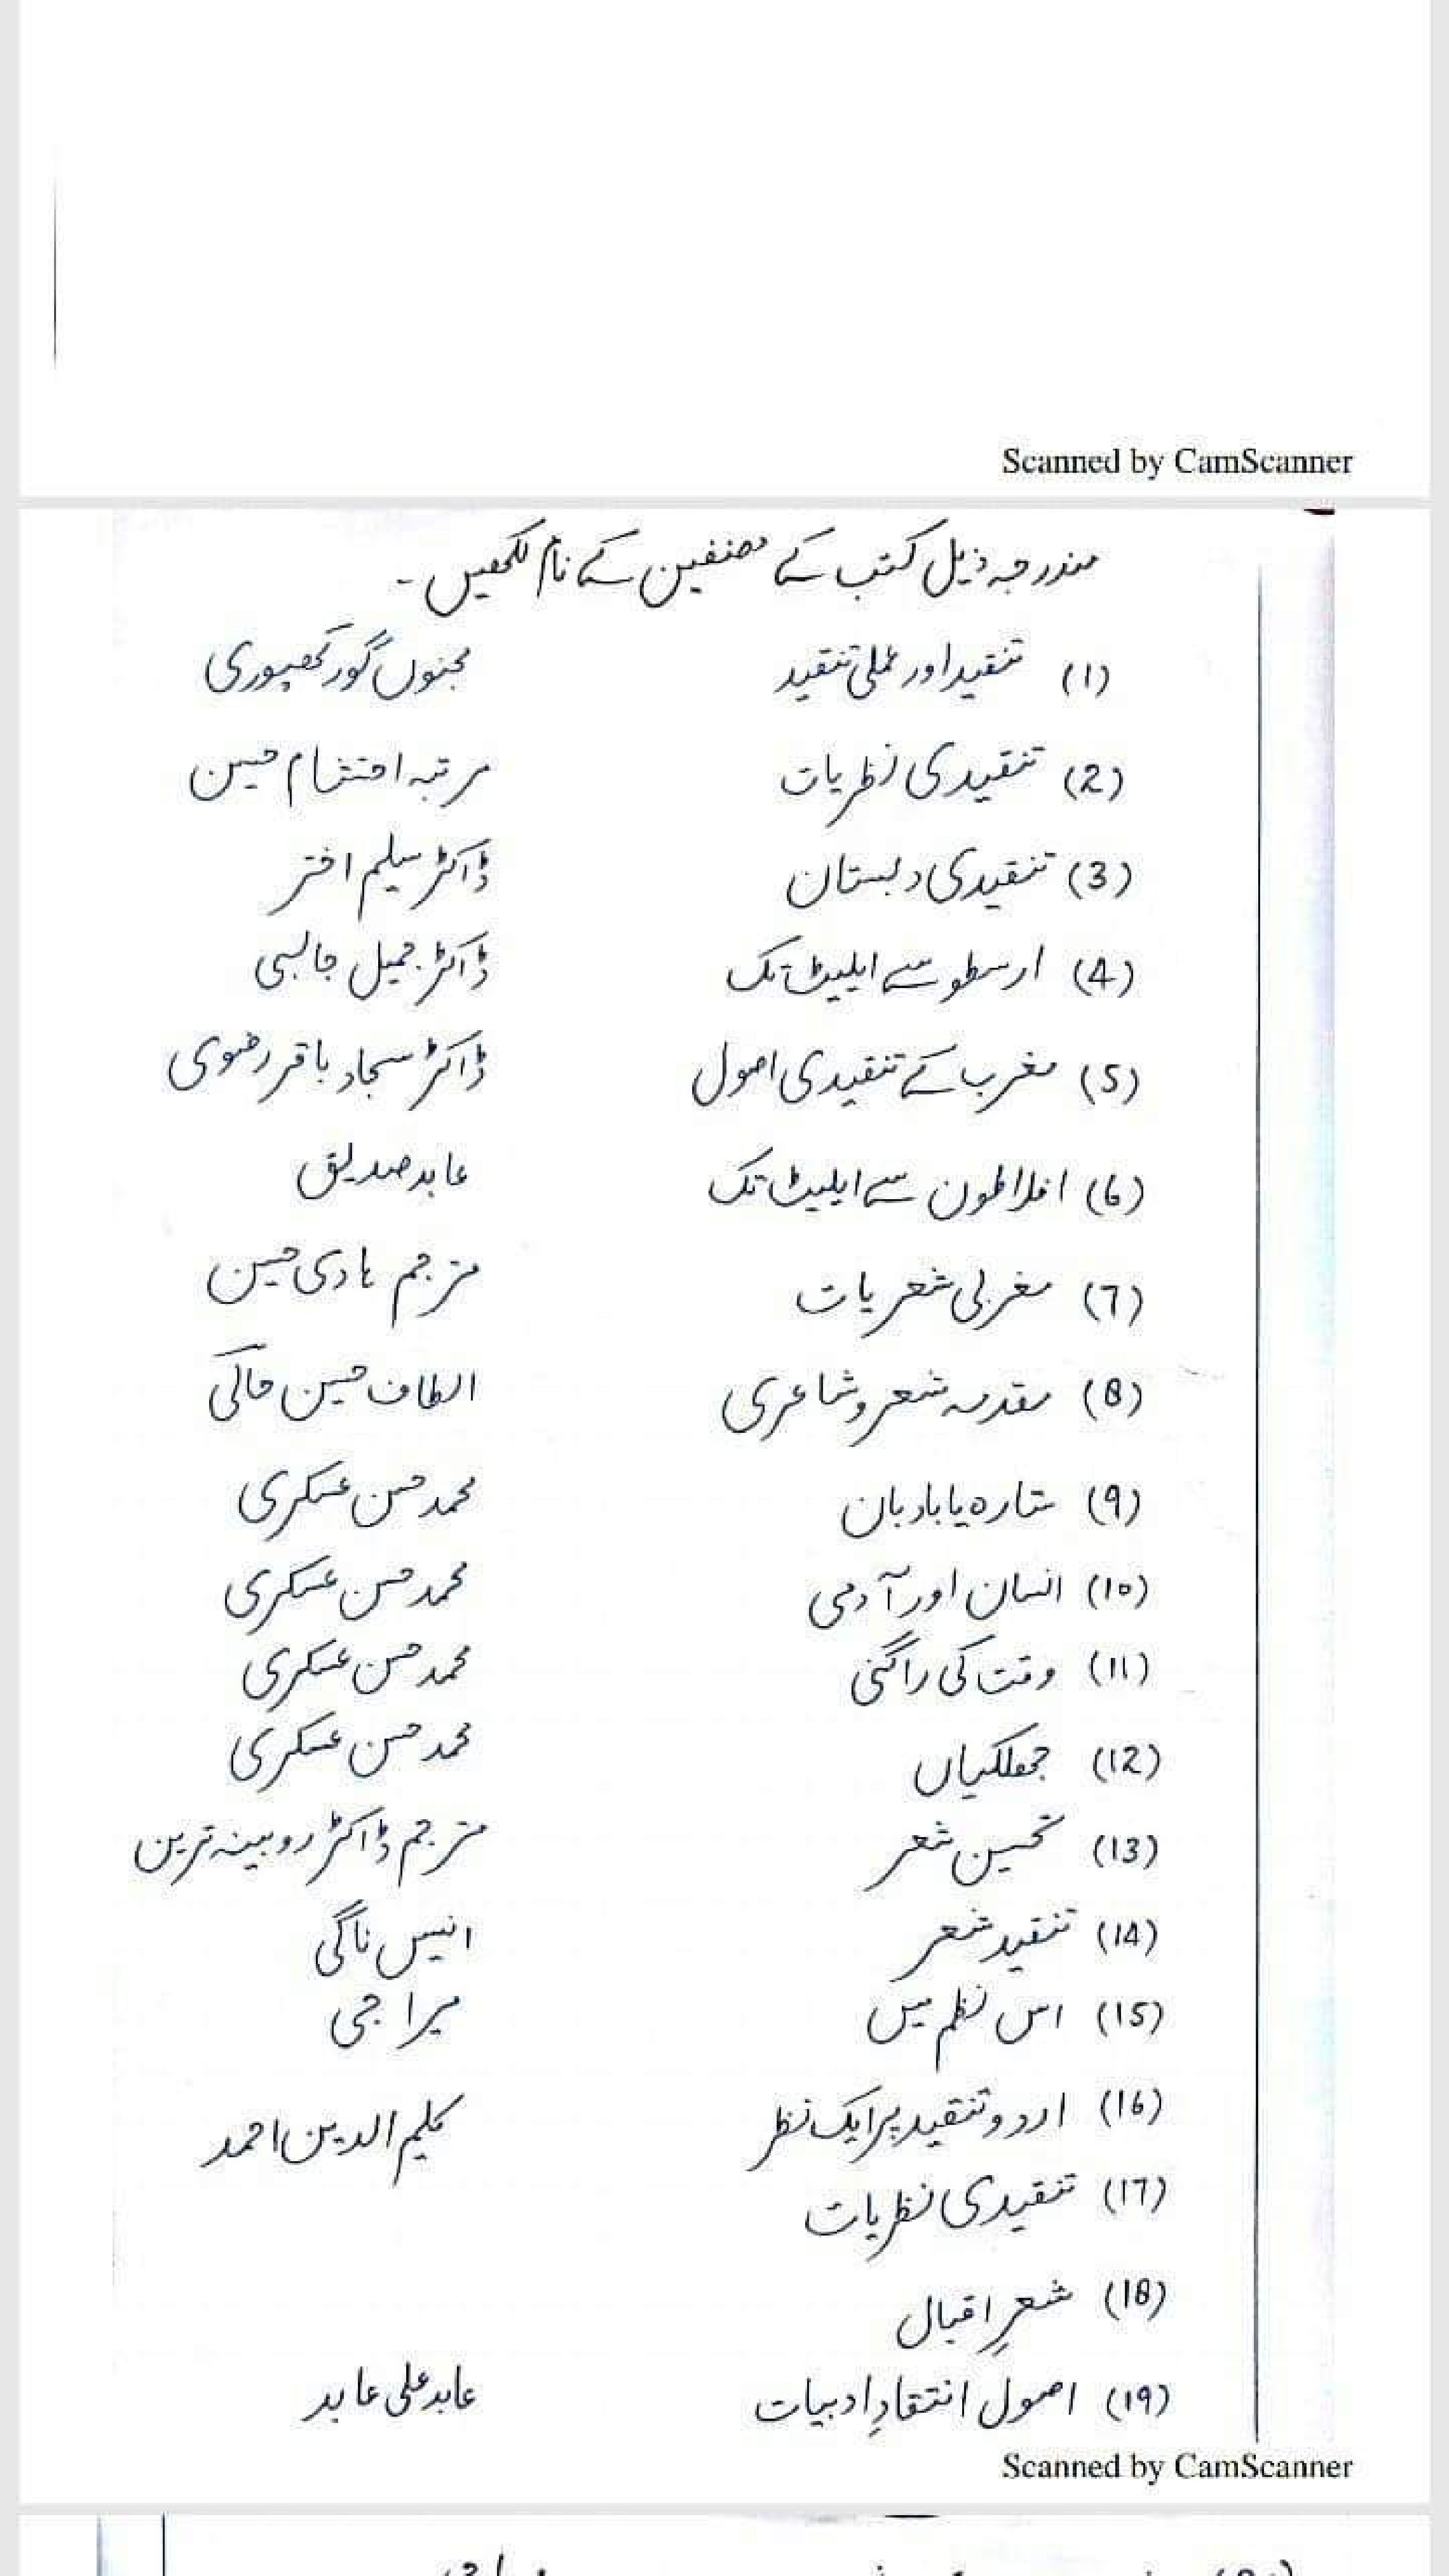 Scanned by CamScanner
مندرجہ ذیل کتب کے مصنفین کے نام لکھیں۔
(1) تنقید اور عملی تنقید مجنوں گورکھپوری
(2) تنقیدی نظریات مرتبہ احتشام حسین
(3) تنقیدی دبستان ڈاکٹر سلیم اختر
(4) ارسطو سے ایلیٹ تک ڈاکٹر جمیل جالبی
(5) مغرب کے تنقیدی اصول ڈاکٹر سجاد باقر رضوی
(6) افلاطون سے ایلیٹ تک عابد صدیق
(7) مغربی شعریات مترجم ہادی حسین
(8) مقدمہ شعر و شاعری الطاف حسین حالی
(9) ستارہ یا بادبان محمد حسن عسکری
(10) انسان اور آدمی محمد حسن عسکری
(11) وقت کی راگنی محمد حسن عسکری
(12) جھلکیاں محمد حسن عسکری
(13) تحسین شعر مترجم ڈاکٹر روبینہ ترین
(14) تنقید شعر انیس ناگی
(15) اس نظم میں میرا جی
(16) اردو تنقید پر ایک نظر کلیم الدین احمد
(17) تنقیدی نظریات
(18) شعرِ اقبال
(19) اصول انتقادِ ادبیات عابد علی عابد
Scanned by CamScanner